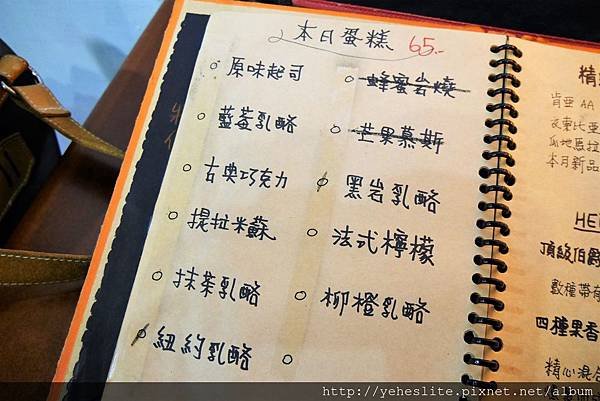 本日蛋糕 65.-
原味起司
藍莓乳酪
古典巧克力
提拉米蘇
抹茶乳酪
紐約乳酪
蜂蜜岩燒
芒果慕斯
黑岩乳酪
法式檸檬
柳橙乳酪
精
肯亞 AA
衣索比亞
瓜地馬拉
本月新品
HE
頂級伯爵
數種帶有
四種果香
精心混合
http://yeheslite.pixnet.net/album